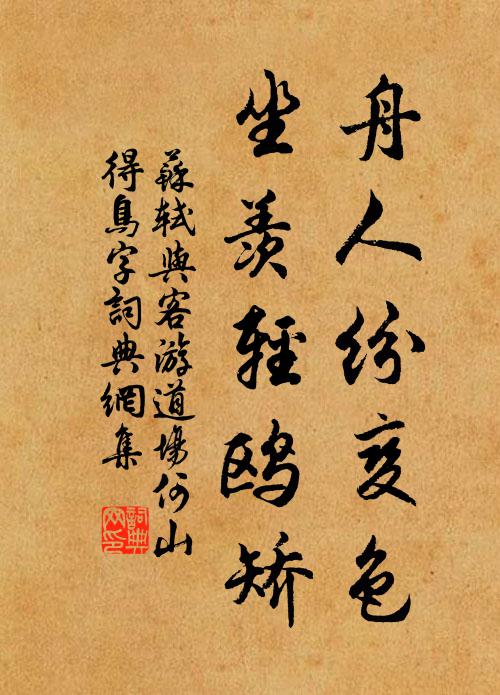 舟人紛变色
坐羨輕鸥矫
蘇軾與客游道場何山
得鳥字詞典網集